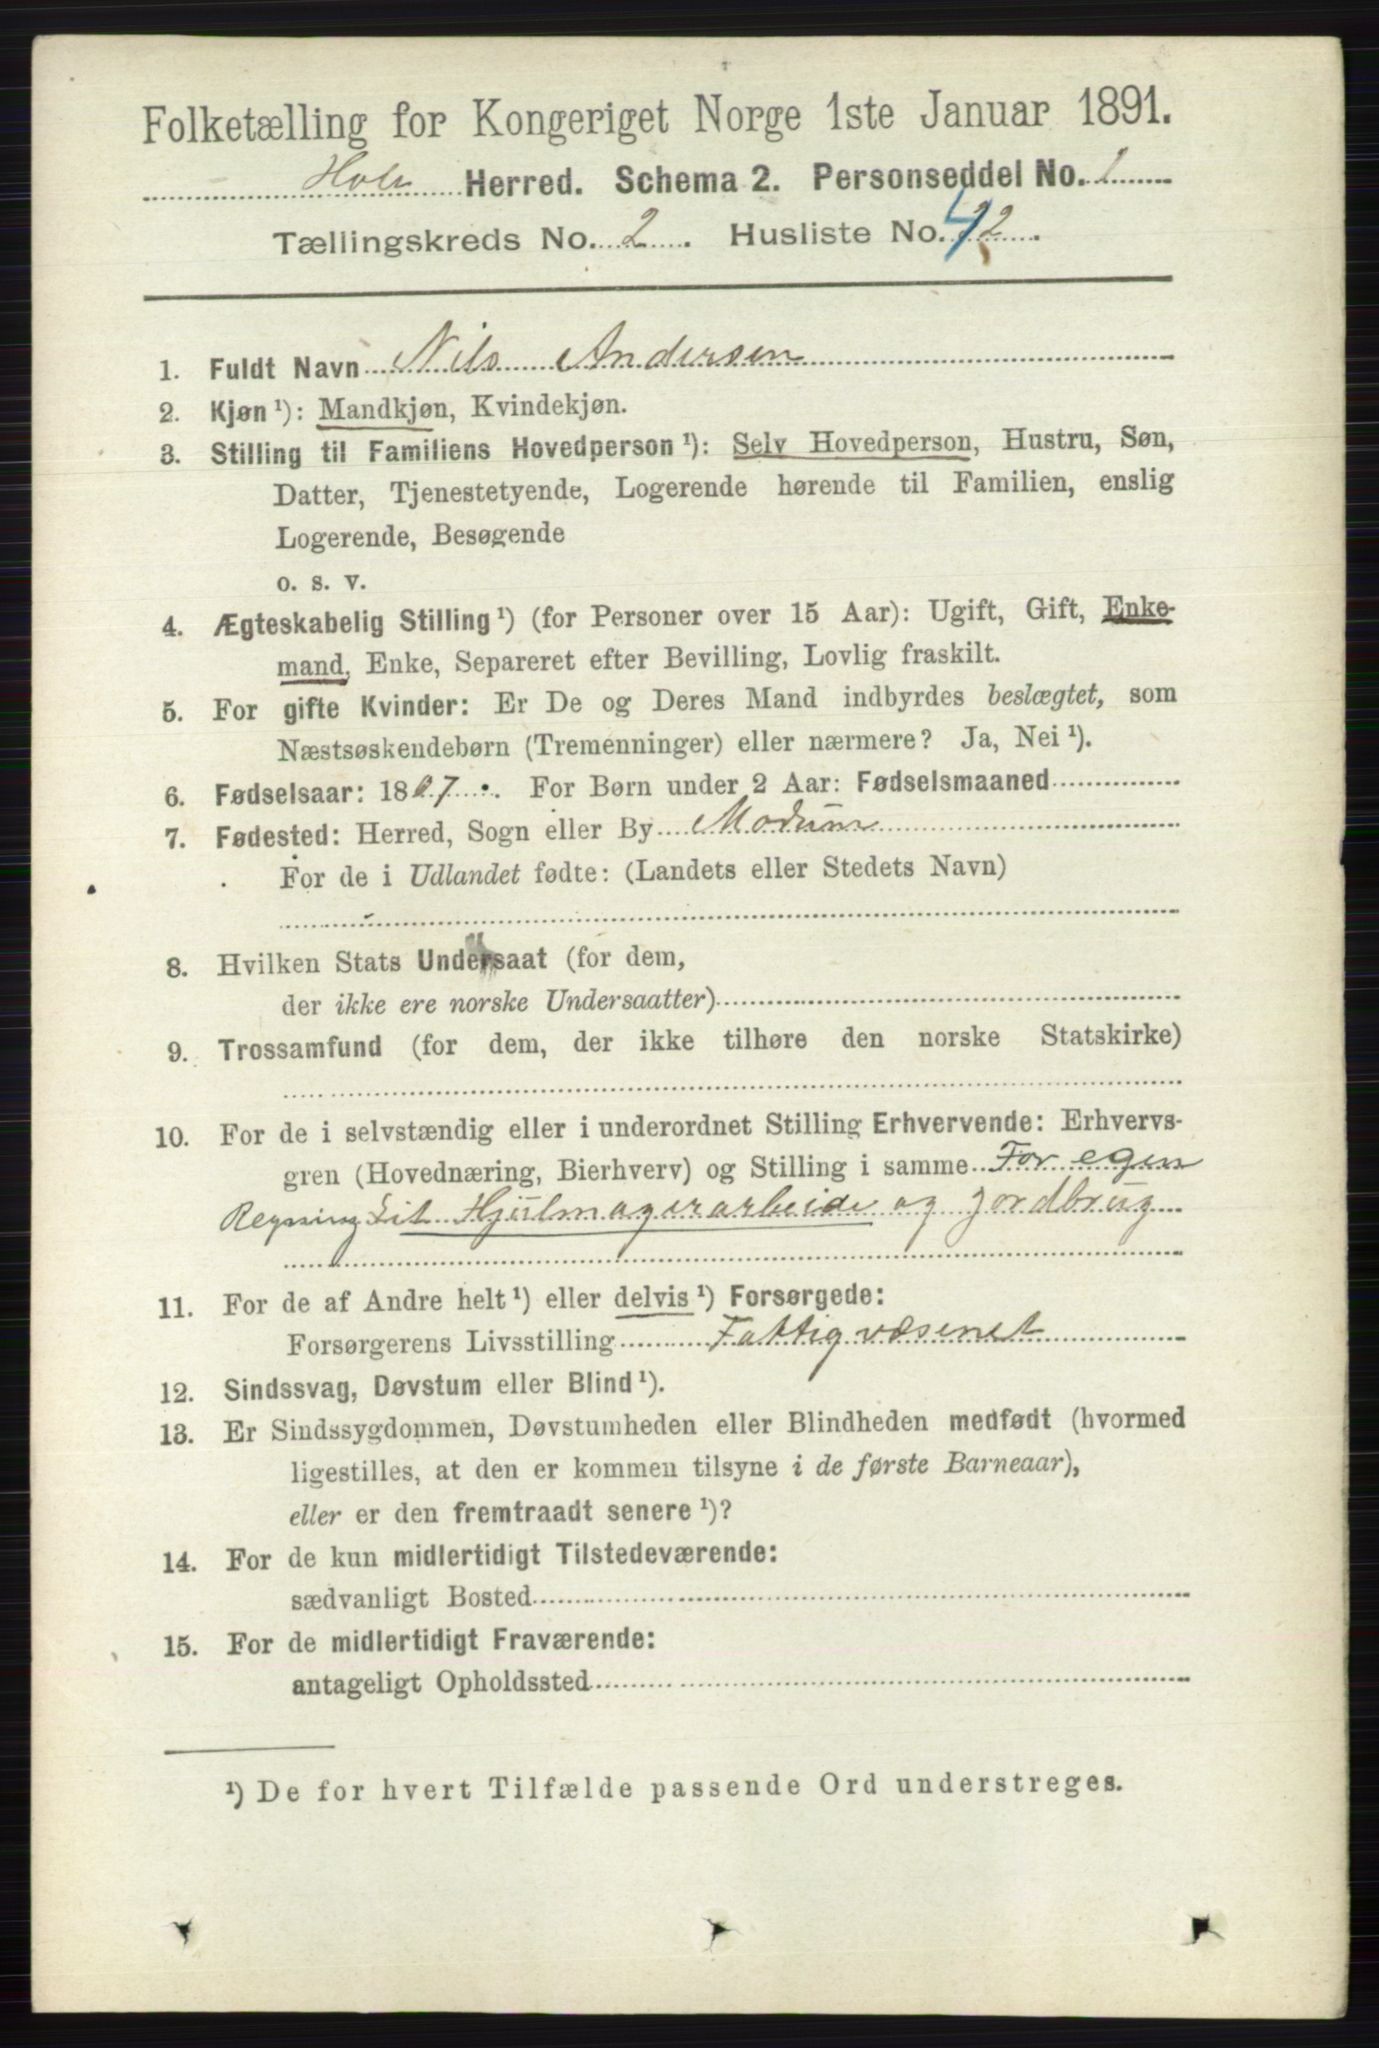 Folketælling for Kongeriget Norge 1ste Januar 1891.
Hole Herred. Schema 2. Personseddel No. 1
Tællingskreds No. 2. Husliste No. 42.
1. Fuldt Navn Nils Andersen
2. Kjøn ¹): Mandkjøn, Kvindekjøn.
3. Stilling til Familiens Hovedperson ¹): Selv Hovedperson, Hustru, Søn,
Datter, Tjenestetyende, Logerende hørende til Familien, enslig
Logerende, Besøgende
o. s. v.
4. Ægteskabelig Stilling ¹) (for Personer over 15 Aar): Ugift, Gift, Enke-
mand, Enke, Separeret efter Bevilling, Lovlig fraskilt.
5. For gifte Kvinder: Er De og Deres Mand indbyrdes beslægtet, som
Næstsøskendebørn (Tremenninger) eller nærmere? Ja, Nei ¹).
6. Fødselsaar: 1807. For Børn under 2 Aar: Fødselsmaaned
7. Fødested: Herred, Sogn eller By Modum
For de i Udlandet fødte: (Landets eller Stedets Navn)
8. Hvilken Stats Undersaat (for dem,
der ikke ere norske Undersaatter)
9. Trossamfund (for dem, der ikke tilhøre den norske Statskirke)
10. For de i selvstændig eller i underordnet Stilling Erhvervende: Erhvervs-
gren (Hovednæring, Bierhverv) og Stilling i samme For egen
Regning Lit Hjulmagerarbeide og Jordbrug
11. For de af Andre helt ¹) eller delvis ¹) Forsørgede:
Forsørgerens Livsstilling Fattigvæsenet
12. Sindssvag, Døvstum eller Blind ¹).
13. Er Sindssygdommen, Døvstumheden eller Blindheden medfødt (hvormed
ligestilles, at den er kommen tilsyne i de første Barneaar),
eller er den fremtraadt senere ¹)?
14. For de kun midlertidigt Tilstedeværende:
sædvanligt Bosted
15. For de midlertidigt Fraværende:
antageligt Opholdssted
¹) De for hvert Tilfælde passende Ord understreges.